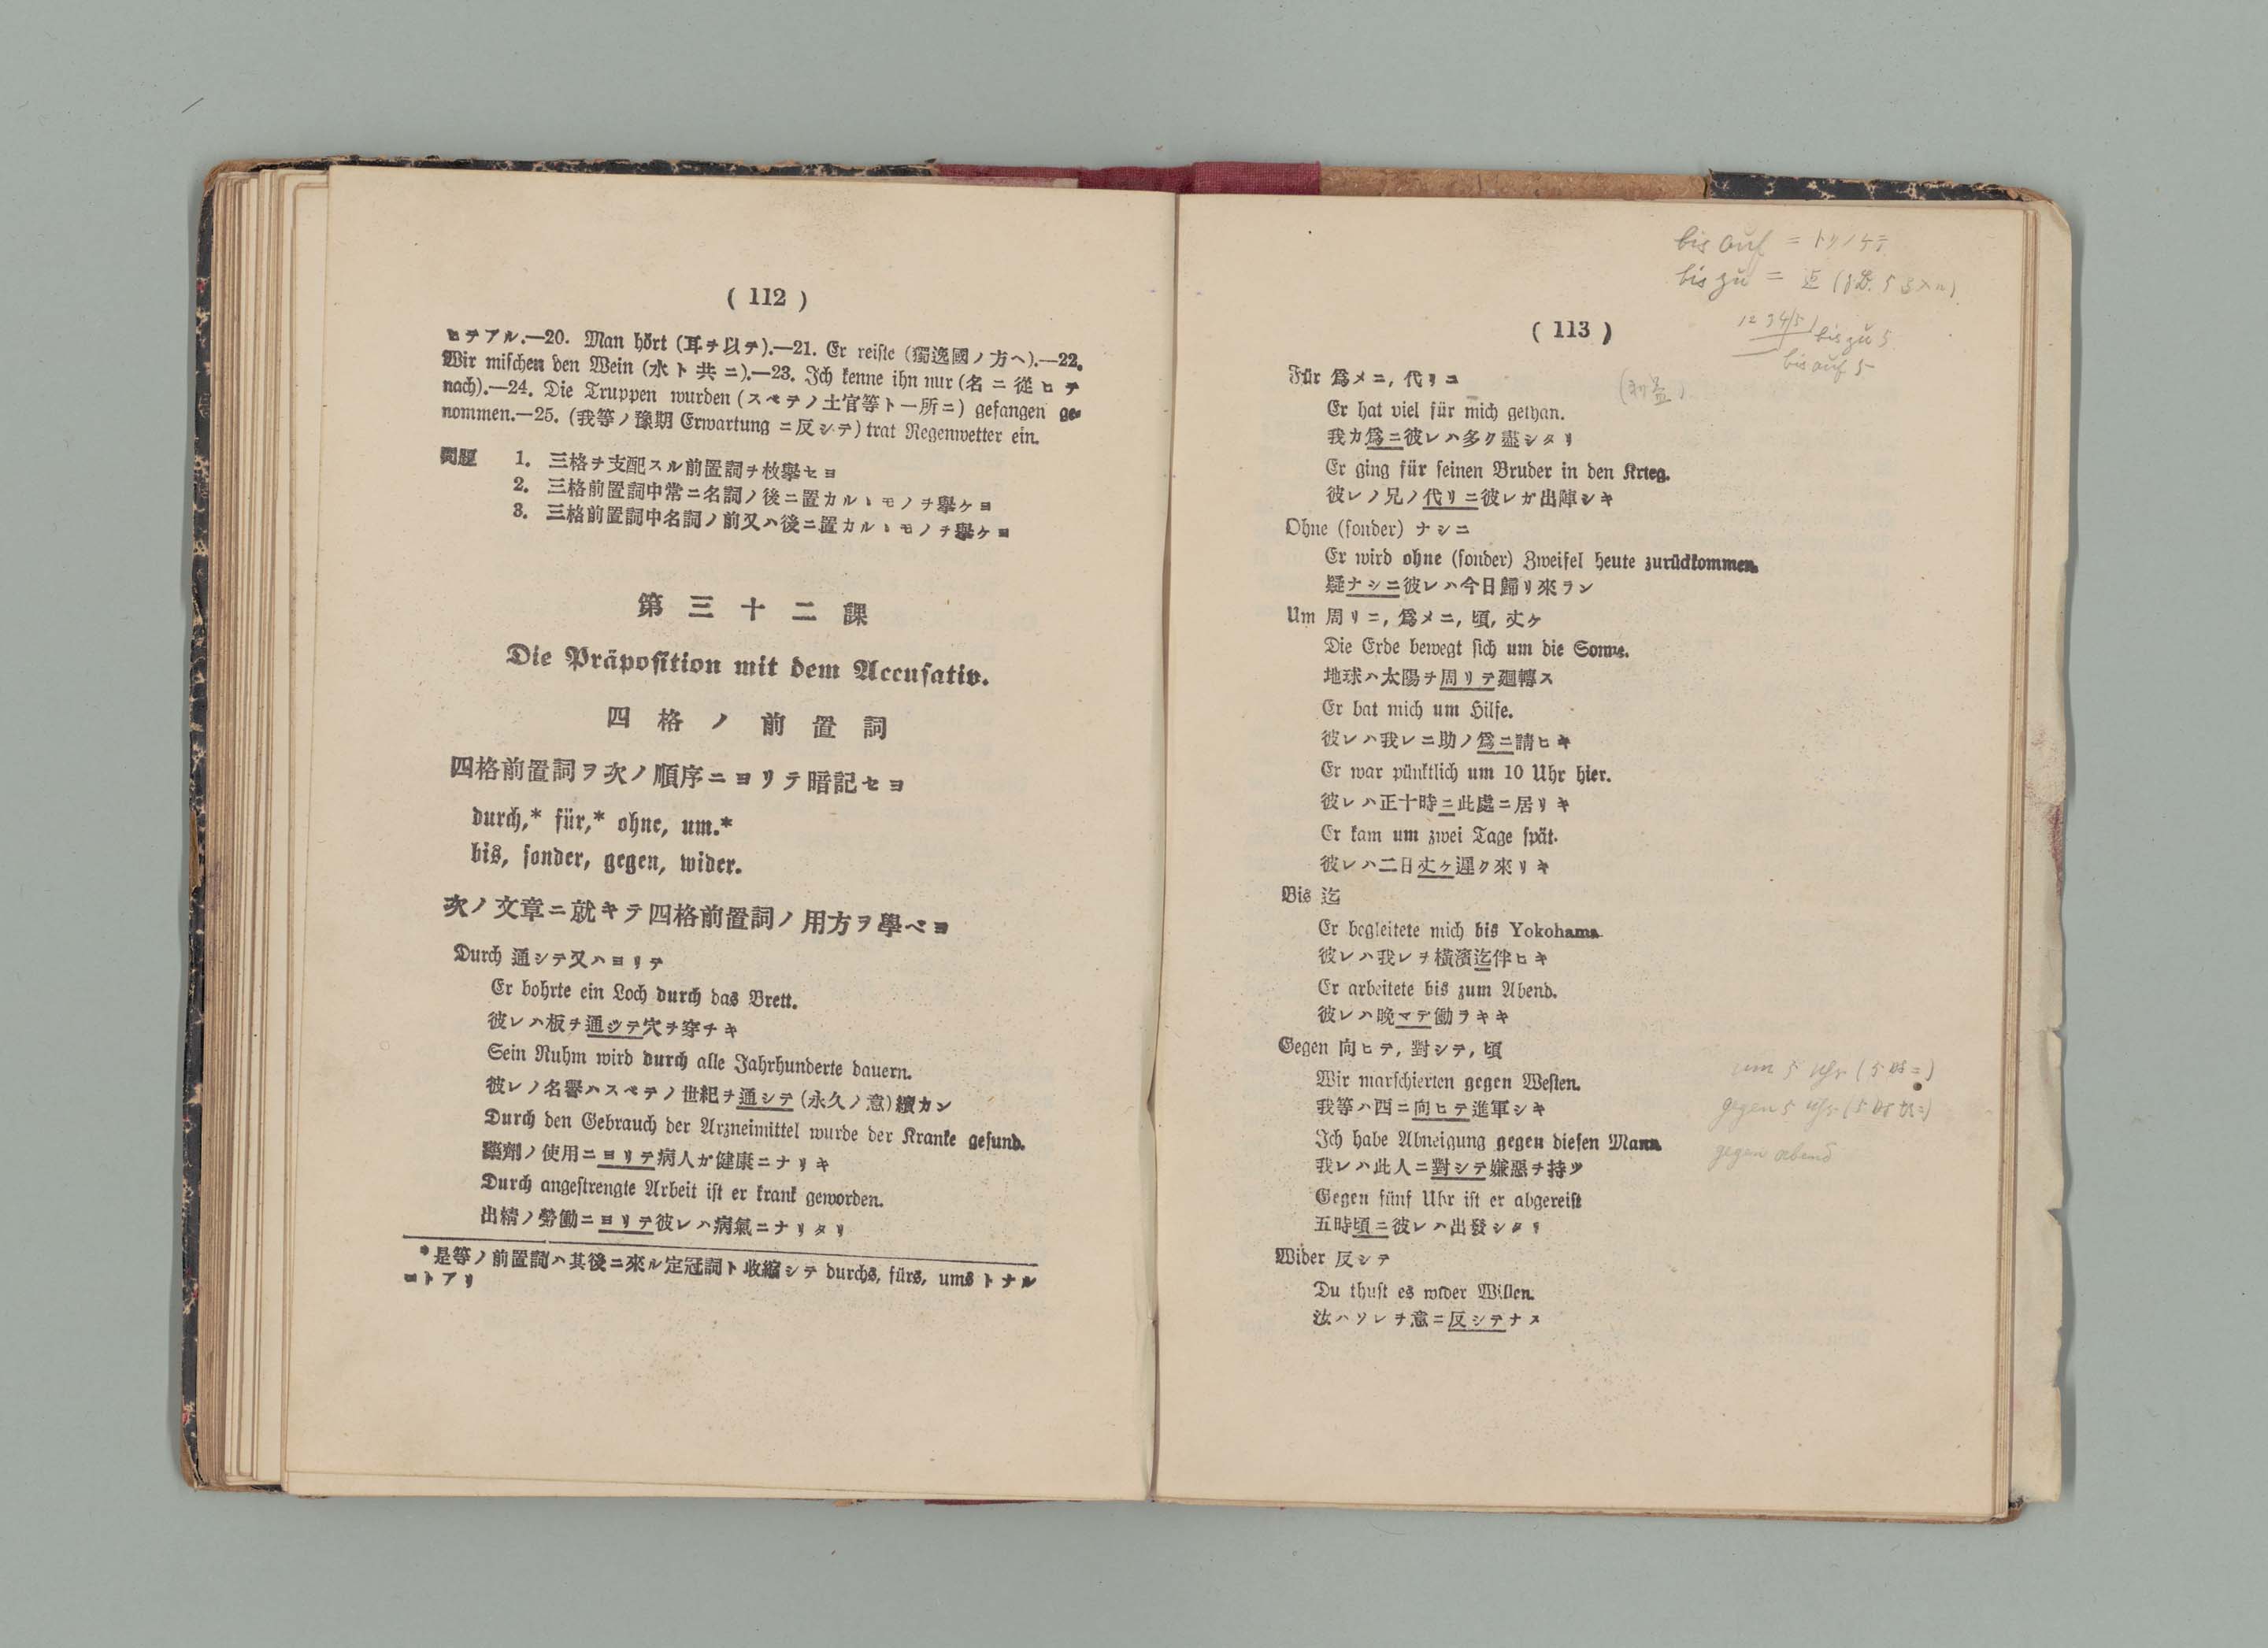 ( 112 )
ヒテアル.—20. Man hört (耳ヲ以テ).—21. Er reiste (獨逸國ノ方ヘ).—22.
Wir mischen den Wein (水ト共ニ).—23. Ich kenne ihn nur (名ニ從ヒテ
nach).—24. Die Truppen wurden (スベテノ士官等ト一所ニ) gefangen ge-
nommen.—25. (我等ノ豫期 Erwartung ニ反シテ) trat Regenwetter ein.
問題 1. 三格ヲ支配スル前置詞ヲ枚擧セヨ
2. 三格前置詞中常ニ名詞ノ後ニ置カルヽモノヲ擧ケヨ
3. 三格前置詞中名詞ノ前又ハ後ニ置カルヽモノヲ擧ケヨ
第三十二課
Die Präposition mit dem Accusativ.
四格ノ前置詞
四格前置詞ヲ次ノ順序ニヨリテ暗記セヨ
durch,* für,* ohne, um.*
bis, sonder, gegen, wider.
次ノ文章ニ就キテ四格前置詞ノ用方ヲ學ベヨ
Durch 通シテ又ハヨリテ
Er bohrte ein Loch durch das Brett.
彼レハ板ヲ通シテ穴ヲ穿チキ
Sein Ruhm wird durch alle Jahrhunderte dauern.
彼レノ名譽ハスベテノ世紀ヲ通シテ (永久ノ意) 續カン
Durch den Gebrauch der Arzneimittel wurde der Kranke gesund.
藥劑ノ使用ニヨリテ病人ガ健康ニナリキ
Durch angestrengte Arbeit ist er krank geworden.
出精ノ勞働ニヨリテ彼レハ病氣ニナリタリ
*是等ノ前置詞ハ其後ニ來ル定冠詞ト收縮シテ durchs, fürs, ums トナル
コトアリ
bis auf = トリノケテ
bis zu = 迄
1 2 3 4 5
bis zu 5
bis auf 5
( 113 )
Für 爲メニ, 代リニ
(利益)
Er hat viel für mich gethan.
我カ爲ニ彼レハ多ク盡シタリ
Er ging für seinen Bruder in den Krieg.
彼レノ兄ノ代リニ彼レガ出陣シキ
Ohne (sonder) ナシニ
Er wird ohne (sonder) Zweifel heute zurückkommen.
疑ナシニ彼レハ今日歸リ來ラン
Um 周リニ, 爲メニ, 頃, 丈ケ
Die Erde bewegt sich um die Sonne.
地球ハ太陽ヲ周リテ廻轉ス
Er bat mich um Hilfe.
彼レハ我レニ助ノ爲ニ請ヒキ
Er war pünktlich um 10 Uhr hier.
彼レハ正十時ニ此處ニ居リキ
Er kam um zwei Tage spät.
彼レハ二日丈ケ遲ク來リキ
Bis 迄
Er begleitete mich bis Yokohama.
彼レハ我レヲ横濱迄伴ヒキ
Er arbeitete bis zum Abend.
彼レハ晩マデ働ラキキ
Gegen 向ヒテ, 對シテ, 頃
um 5 Uhr (5時ニ)
Wir marschierten gegen Westen.
我等ハ西ニ向ヒテ進軍シキ
gegen 5 Uhr (5時頃ニ)
Ich habe Abneigung gegen diesen Mann.
gegen abend
我レハ此人ニ對シテ嫌惡ヲ持ツ
Gegen fünf Uhr ist er abgereist
五時頃ニ彼レハ出發シタリ
Wider 反シテ
Du thust es wider Willen.
汝ハソレヲ意ニ反シテナス